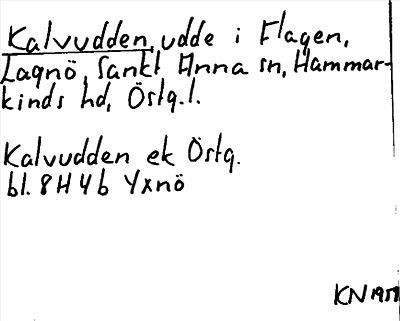 Kalvudden, udde i Flagen,
Lagnö, Sankt Anna sn, Hammar-
kinds hd, Östg.l.
Kalvudden ek Östg.
bl. 8H4b Yxnö
KN